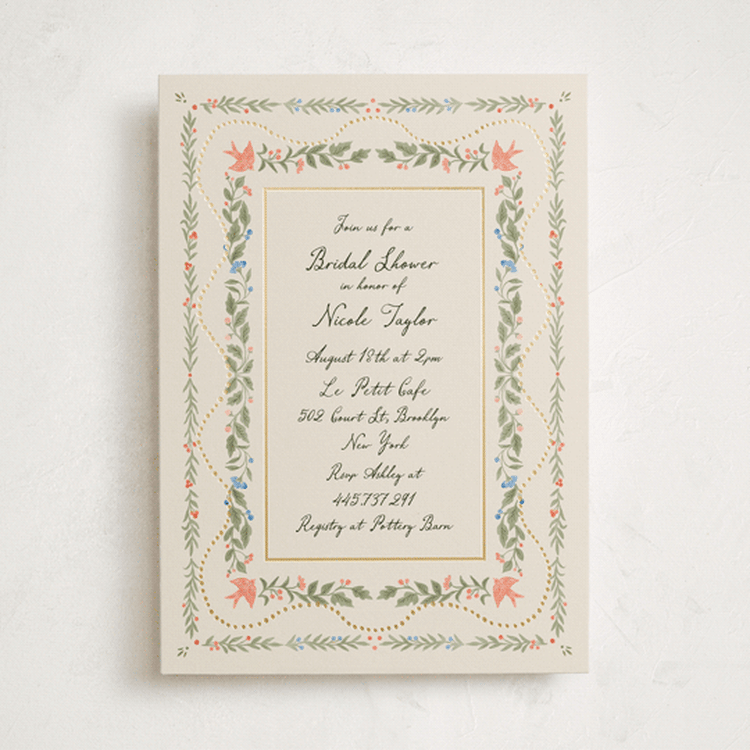 Join us for a
Bridal Shower
in honor of
Nicole Taylor
August 18th at 2pm
Le Petit Cafe
502 Court St, Brooklyn
New York
Rsvp Ashley at
445.737.291
Registry at Pottery Barn